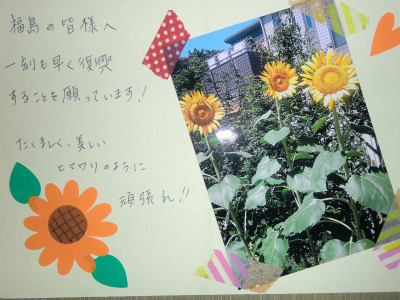 福島の皆様へ
一刻も早く復興
することを願っています!
たくましく、美しい
ヒマワリのように
頑張れ!!